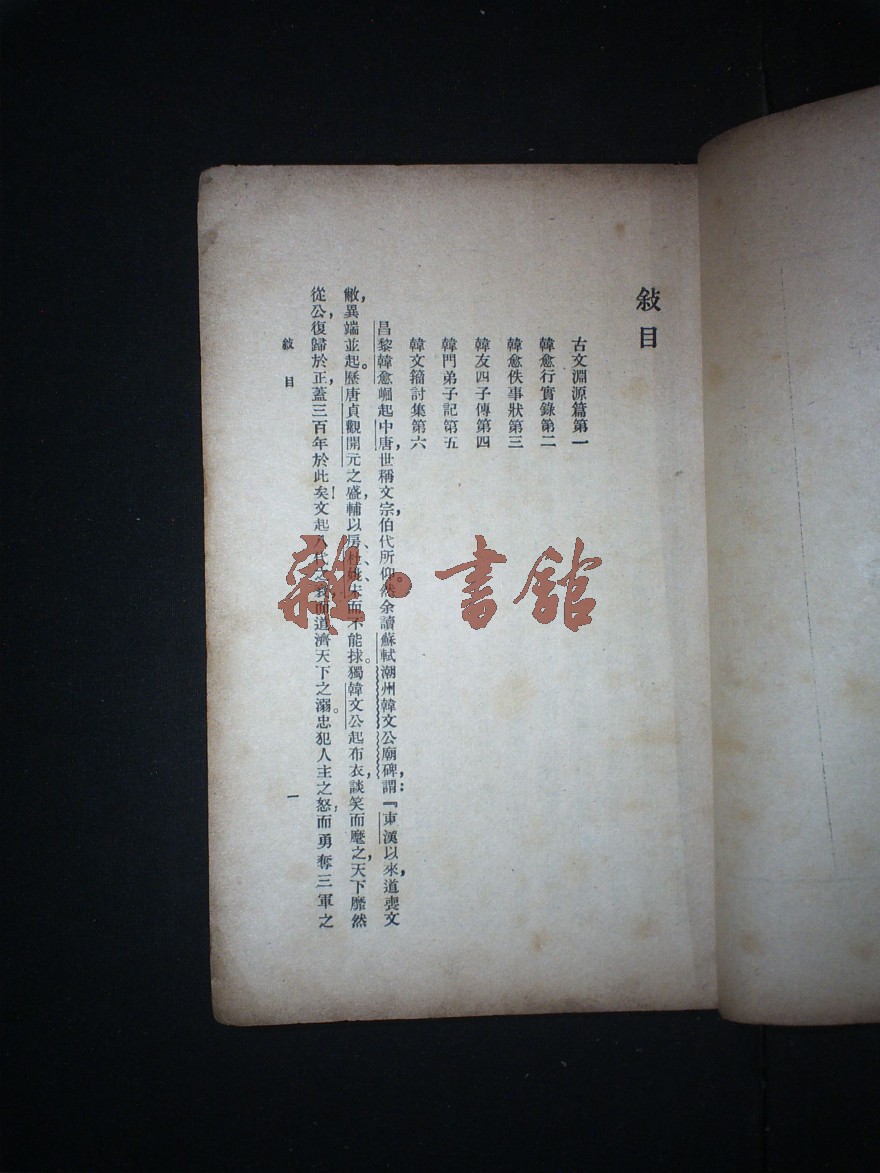 敍目
古文淵源篇第一
韓愈行實錄第二
韓愈佚事狀第三
韓友四子傳第四
韓門弟子記第五
韓文籀討集第六
昌黎韓愈崛起中唐，世稱文宗，伯代所仰。然余讀蘇軾潮州韓文公廟碑，謂：『東漢以來，道喪文
敝，異端並起。歷唐貞觀開元之盛，輔以房、杜、姚、宋而不能捄。獨韓文公起布衣，談笑而麾之，天下靡然
從公，復歸於正，蓋三百年於此矣！文起八代之衰，而道濟天下之溺。忠犯人主之怒，而勇奪三軍之
敍目
一
雜·書館